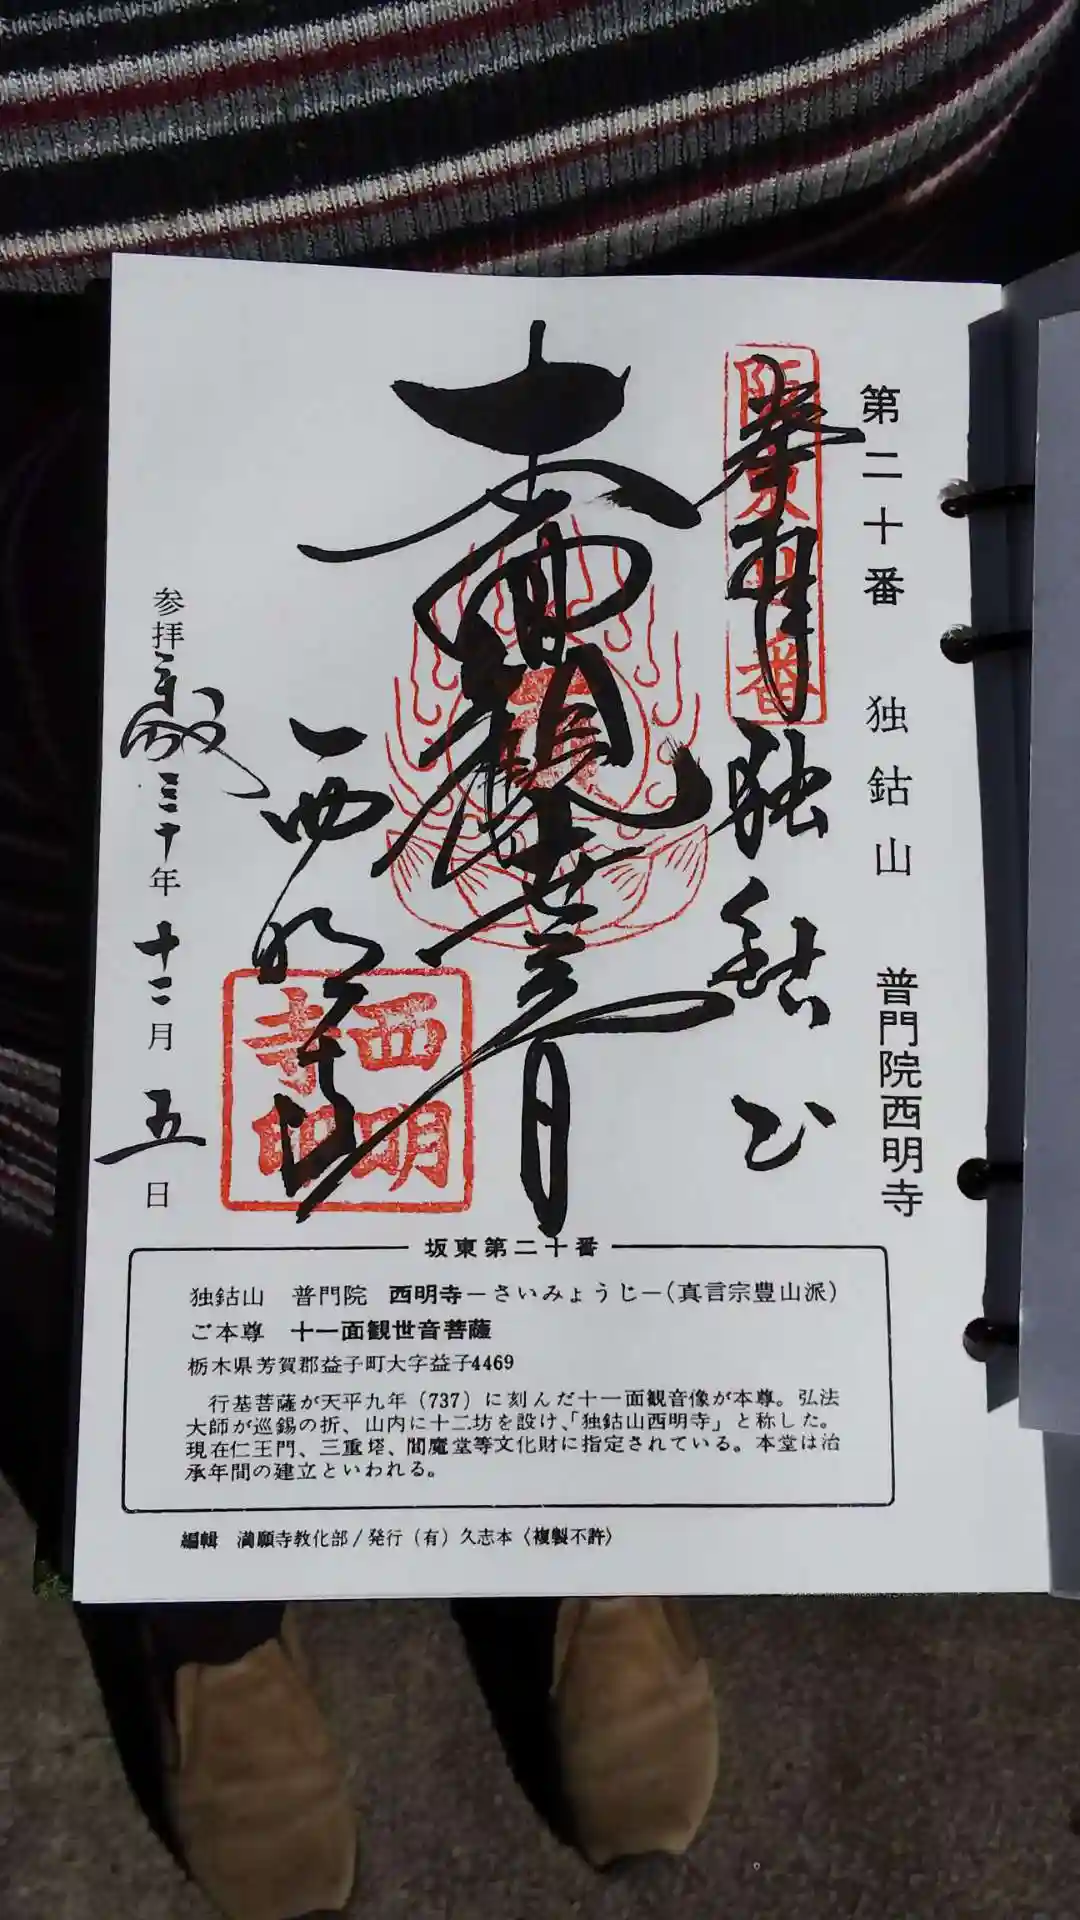 第二十番 独鈷山 普門院西明寺
阪東二十番
奉拝 独鈷山
十一面観世音
西明寺
西明寺印
参拝 平成三十年 十二月 五日
坂東第二十番
独鈷山 普門院 西明寺－さいみょうじ－(真言宗豊山派)
ご本尊 十一面観世音菩薩
栃木県芳賀郡益子町大字益子4469
行基菩薩が天平九年（737）に刻んだ十一面観音像が本尊。弘法
大師が巡錫の折、山内に十二坊を設け、「独鈷山西明寺」と称した。
現在仁王門、三重塔、閻魔堂等文化財に指定されている。本堂は治
承年間の建立といわれる。
編輯 満願寺教化部/発行（有）久志本〈複製不許〉